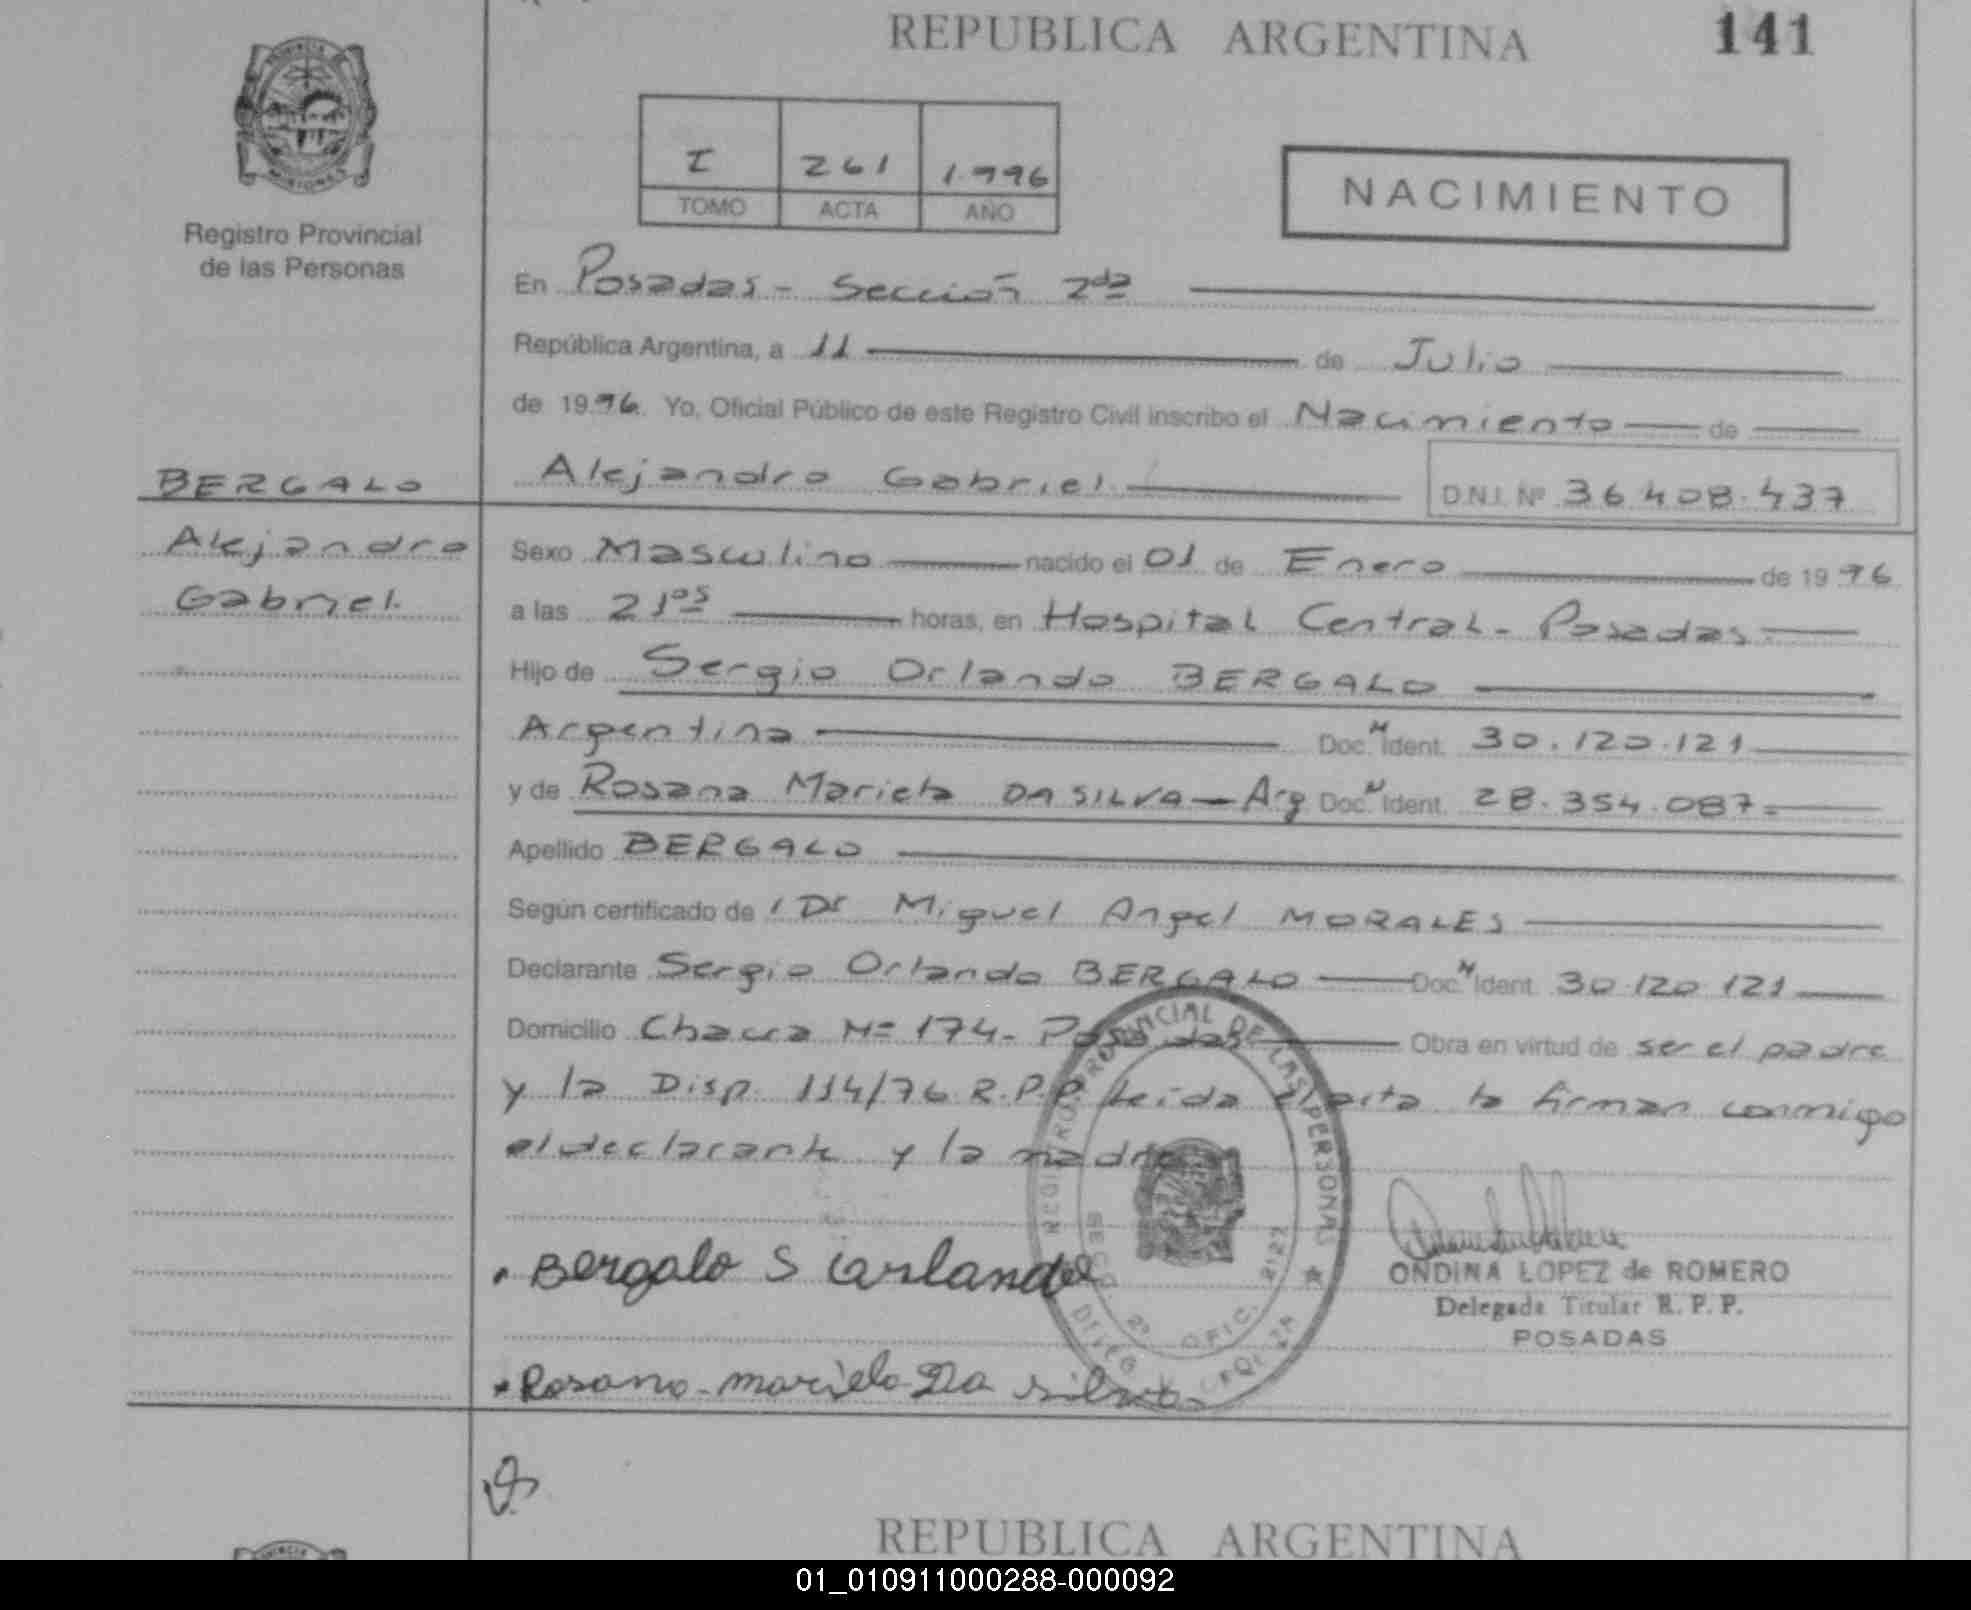 REPUBLICA ARGENTINA
141
PROVINCIA
MISIONES
Registro Provincial
de las Personas
I 261 1.996
TOMO ACTA AÑO
NACIMIENTO
En Posadas - Sección 2da
República Argentina, a 11 de Julio
de 1996 Yo, Oficial Público de este Registro Civil inscribo el Nacimiento de
BERGALO
Alejandro
Gabriel
Alejandro Gabriel D.N.I. Nº 36.408.437
Sexo Masculino nacido el 01 de Enero de 1996
a las 21os horas, en Hospital Central - Posadas
Hijo de Sergio Orlando BERGALO
Argentina Doc. N Ident. 30.120.121
y de Rosana Mariela DA SILVA - Arg Doc. N Ident. 28.354.087 =
Apellido BERGALO
Según certificado de l Dr Miguel Angel MORALES
Declarante Sergio Orlando BERGALO Doc. N Ident. 30.120.121
Domicilio Chacra Nº 174 - Posadas Obra en virtud de ser el padre
y la Disp. 114/76 R.P.P. Leida el acta la firman conmigo
el declarante y la madre
REGISTRO PROVINCIAL DE LAS PERSONAS
SECC. 2ª OFIC. 2127
DELEG URQUIZA
Bergalo S Orlando
ONDINA LOPEZ de ROMERO
Delegada Titular R. P. P.
POSADAS
Rosana Mariela Da silva
REPUBLICA ARGENTINA
01_010911000288-000092